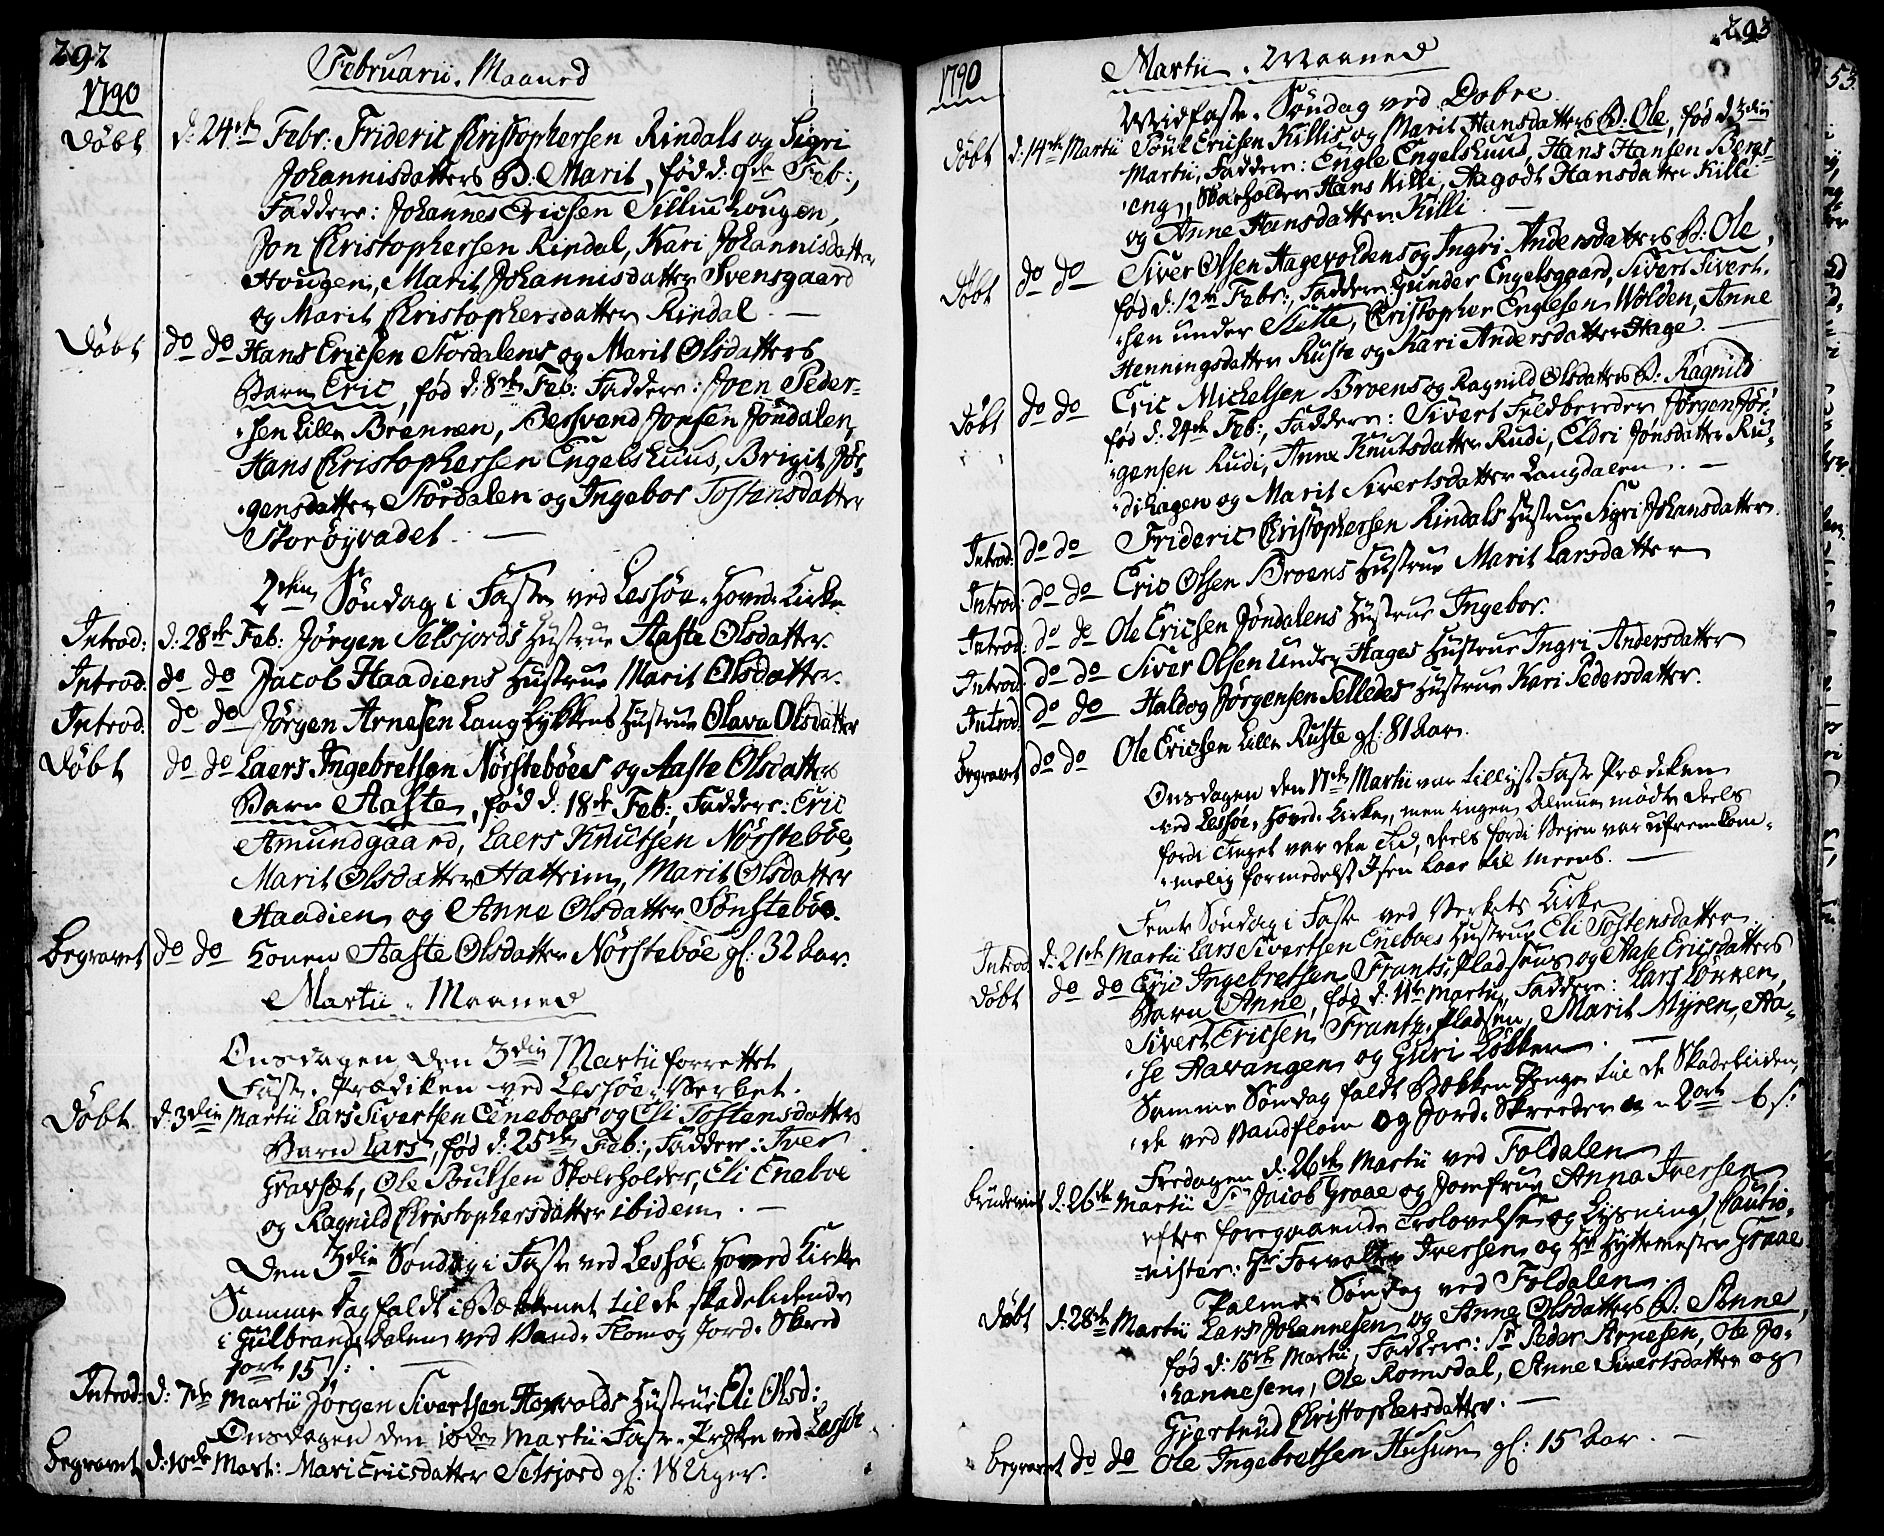 292
1790
Februarii Maaned
Døbt d: 24de Febr: Frideric Christophersen Rindals og Sigri
Johannisdatters B: Marit, fød d: 9de Feb:,
Faddere: Johannes Ericsen Lillihougen,
Jon Christophersen Rindal, Kari Johannisdatter
Hougen, Marit Johannisdatter Svensgaard
og Marit Christophersdatter Rindal. —
Døbt do do Hans Ericsen Stordalens og Marit Olsdatters
Barn Eric, fød d: 8de Feb: Faddere: Joen Peder-
sen Lille Brennen, Bersvend Jonsen Jøndalen,
Hans Christophersen Engelshuus, Brigit Jør-
gensdatter Stordalen og Ingebor Tostensdatter
Storøyvadet. —
2den Søndag i Faste ved Lessøe Hoved Kirke
Introd: d: 28de Feb: Jørgen Selsjords Hustrue Aaste Olsdatter.
Introd: do do Jacob Haadiens Hustrue Marit Olsdatter.
Introd: do do Jørgen Arnesen Langlykkens Hustrue Olava Olsdatter
Døbt do do Laers Ingebretsen Nørstebøes og Aaste Olsdatters
Barn Aaste, fød d: 18de Feb:, Faddere: Eric
Amundgaard, Laers Knutsen Nørstebøe,
Marit Olsdatter Hattrem, Marit Olsdatter
Haadien og Anne Olsdatter Sønstebøe.
Begravet do do Konen Aaste Olsdatter Nørstebøe gl: 32 Aar.
Martii Maaned
Onsdagen den 3die Martii forrettet
Faste Prædiken ved Lessøe Verket.
Døbt d: 3die Martii Lars Sivertsen Eneboes og Eli Tostensdatters
Barn Lars, fød d: 25de Feb:, Faddere: Iver
Gravset, Ole Poulsen Skoleholder, Eli Eneboe
og Ragnild Christophersdatter ibidem. —
Den 3die Søndag i Faste ved Lessøe Hoved Kirke
Samme Dag faldt i Bækkenet til de skadelidende
i Gulbrandsdalen ved Vand-Flom og Jord-Skred
1 ort 15 s:
Introd: d: 7de Martii Jørgen Sivertsen Horvolds Hustrue Eli Olsd:
Onsdagen den 10de Martii Faste Præken ved Lessøe
Begravet d: 10de Mart: Mari Ericsdatter Selsjord gl: 18 Uger.
293
1790
Martii Maaned
Midfaste Søndag ved Dobre
Døbt d: 14de Martii Poul Ericsen Killis og Marit Hansdatters B: Ole, fød d: 3die
Martii, Faddere: Engle Engelshuus, Hans Hansen Bergs-
eng, Skoeholder Hans Killi, Aagodt Hansdatter Killi
og Anne Hansdatter Killi. —
Døbt do do Siver Olsen Hagevoldens og Ingri Andersdatters B: Ole,
fød d: 12te Febr:, Faddere Gunder Engelsgaard, Sivert Sivert-
sen under Slette, Christopher Englesen Wolden, Anne
Henningsdatter Ruste og Kari Andersdatter Hage. —
Døbt do do Eric Michelsen Broens og Ragnild Olsdatters B: Ragnild
fød d: 24de Feb:, Faddere: Sivert Feldbereder, Jørgen Jør-
gensen Rudi, Anne Knutsdatter Rudi, Eldri Jonsdatter Ru-
dihagen og Marit Sivertsdatter Langdalen. —
Introd: do do Frideric Christophersen Rindals Hustrue Sigri Johansdatter.
Introd: do do Eric Olsen Broens Hustrue Marit Larsdatter
Introd: do do Ole Ericsen Jøndalens Hustrue Ingebor.
Introd: do do Siver Olsen Under Hages Hustrue Ingri Andersdatter
Introd: do do Haldog Jørgensen Selledes Hustrue Kari Pedersdatter.
Begravet do do Ole Ericsen Lille Ruste gl: 81 Aar.
Onsdagen den 17de Martii var tillyst Faste Prædiken
ved Lessøe Hoved Kirke, men ingen Almue mødte deels
fordi Tinget var den Tid, deels fordi Vejen var ufremkom-
melig formedelst Isen laae til Meens. —
Femte Søndag i Faste ved Verkets Kirke
Introd: d: 21de Martii Lars Sivertsen Eneboes Hustrue Eli Tostensdatter.
Døbt do do Eric Ingebretsen Frantz-Pladsens og Aase Ericsdatters
Barn Anne, fød d: 11te Martii, Faddere: Lars Lønnen,
Sivert Ericsen Frantz-Pladsen, Marit Myren, Aa-
se Aavangen og Guri Løkken. —
Samme Søndag faldt Bækken Penge til de Skadeliden-
de ved Vandflom og Jord-Skreeder 2 ort 6 s:
Fredagen d: 26de Martii ved Foldalen
Brudeviet d: 26de Martii Sr Jacob Graae og Jomfrue Anna Iversen
efter foregaaende Trolovelse og Lysning, Cautio-
nister: Hr Forvalter Iversen og Hr Hyttemester Graae
Palme Søndag ved Foldalen
Døbt d: 28de Martii Lars Johannesen og Anne Olsdatters B: Anne,
fød d: 15de Martii, Faddere: Sr Peder Arnesen, Ole Jo-
hannesen, Ole Romsdal, Anne Sivertsdatter og
Giertrud Christophersdatter. —
Begravet do do Ole Ingebretsen Husum gl: 15 Aar. —